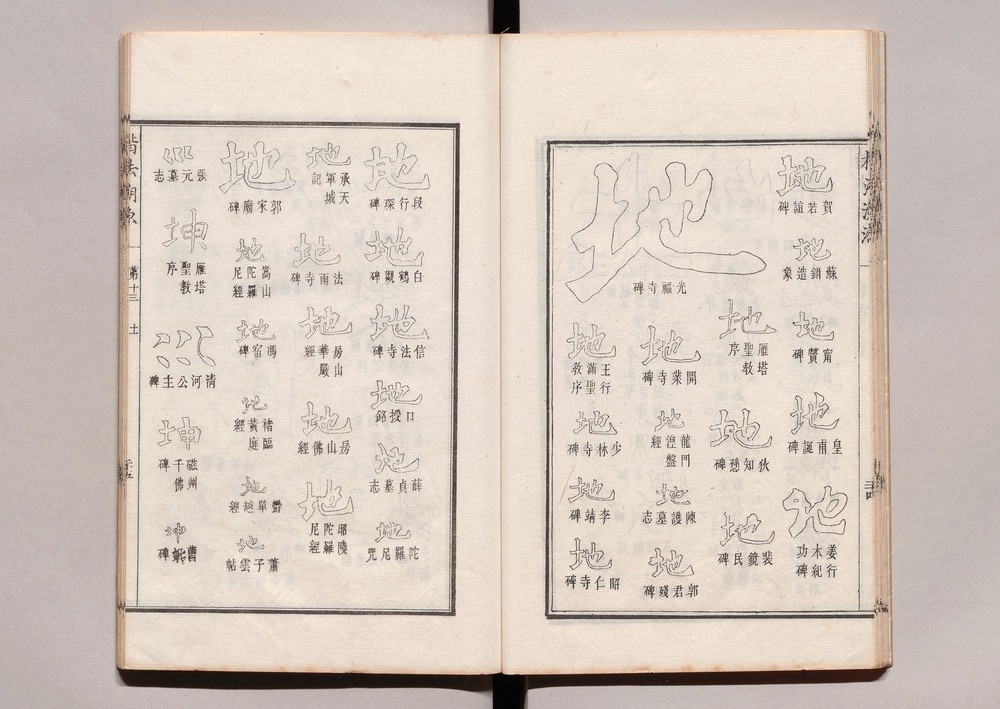 地
賀若誼碑
地
蘇鎖造象
地
甯贙碑
地
皇甫誕碑
地
姜行本紀功碑
地
光福寺碑
地
雁塔聖教序
地
狄知愻碑
地
裴鏡民碑
地
開業寺碑
地
龍門涅盤經
地
陳護墓志
地
郭君殘碑
地
王行滿聖教序
地
少林寺碑
地
李靖碑
地
昭仁寺碑
地
段行琛碑
地
白鶴觀碑
地
信法寺碑
地
口授銘
地
薛貞墓志
地
陀羅尼咒
地
承天軍城記
地
法雨寺碑
地
房山華嚴經
地
房山佛經
地
昭陵陀羅尼經
地
郭家廟碑
地
嵩山陀羅尼經
地
馮宿碑
地
褚臨黃庭經
地
鬱單越經
地
蕭子雲帖
巛
張元墓志
坤
雁塔聖教序
巛
清河公主碑
坤
磁州千佛碑
坤
楷法溯源
第十三
土